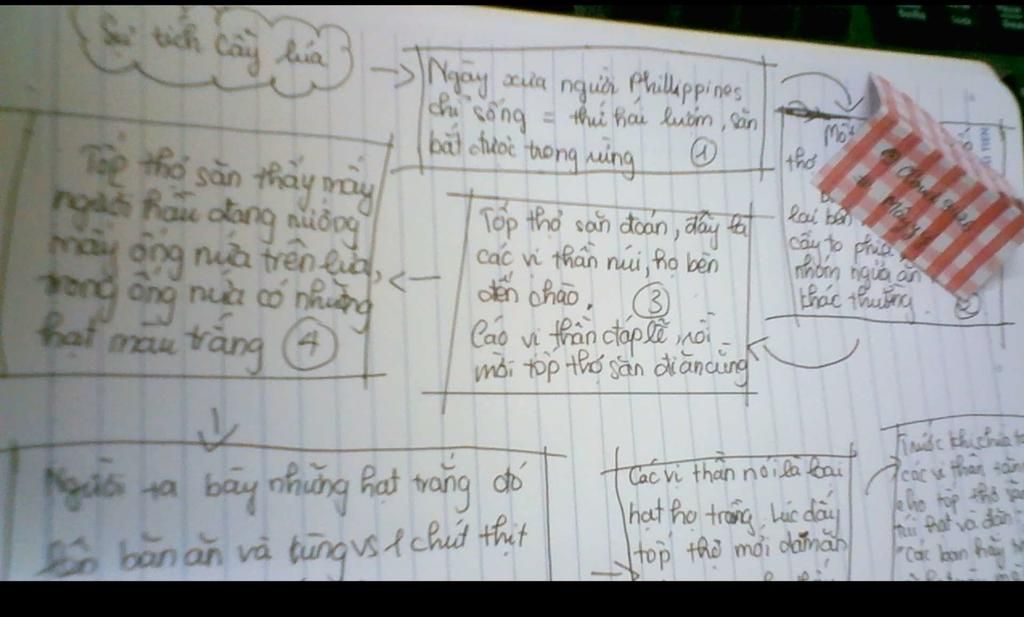 Sự tích cây lúa
Ngày xưa người Phillippines
chỉ sống = thú hái lượm, săn
bắt được trong rừng ①
Một
thợ
lại bên
cây to phía
nhóm người ăn
khác thường. ②
Tốp thợ săn đoán, đây là
các vị thần núi, họ bèn
đến chào. ③
Các vị thần đáp lễ, rồi
mời tốp thợ săn đi ăn cùng
Tốp thợ săn thấy mấy
người hầu đang nướng
mấy ống nứa trên lửa,
trong ống nứa có những
hạt màu trắng ④
Người ta bày những hạt trắng đó
lên bàn ăn và cùng vs 1 chút thịt
Các vị thần nói là loại
hạt họ trồng. Lúc đấy
tốp thợ mới dám ăn
Trước khi chia
các vị thần
cho tốp thợ săn
túi hạt và dặn
"Các bạn hãy